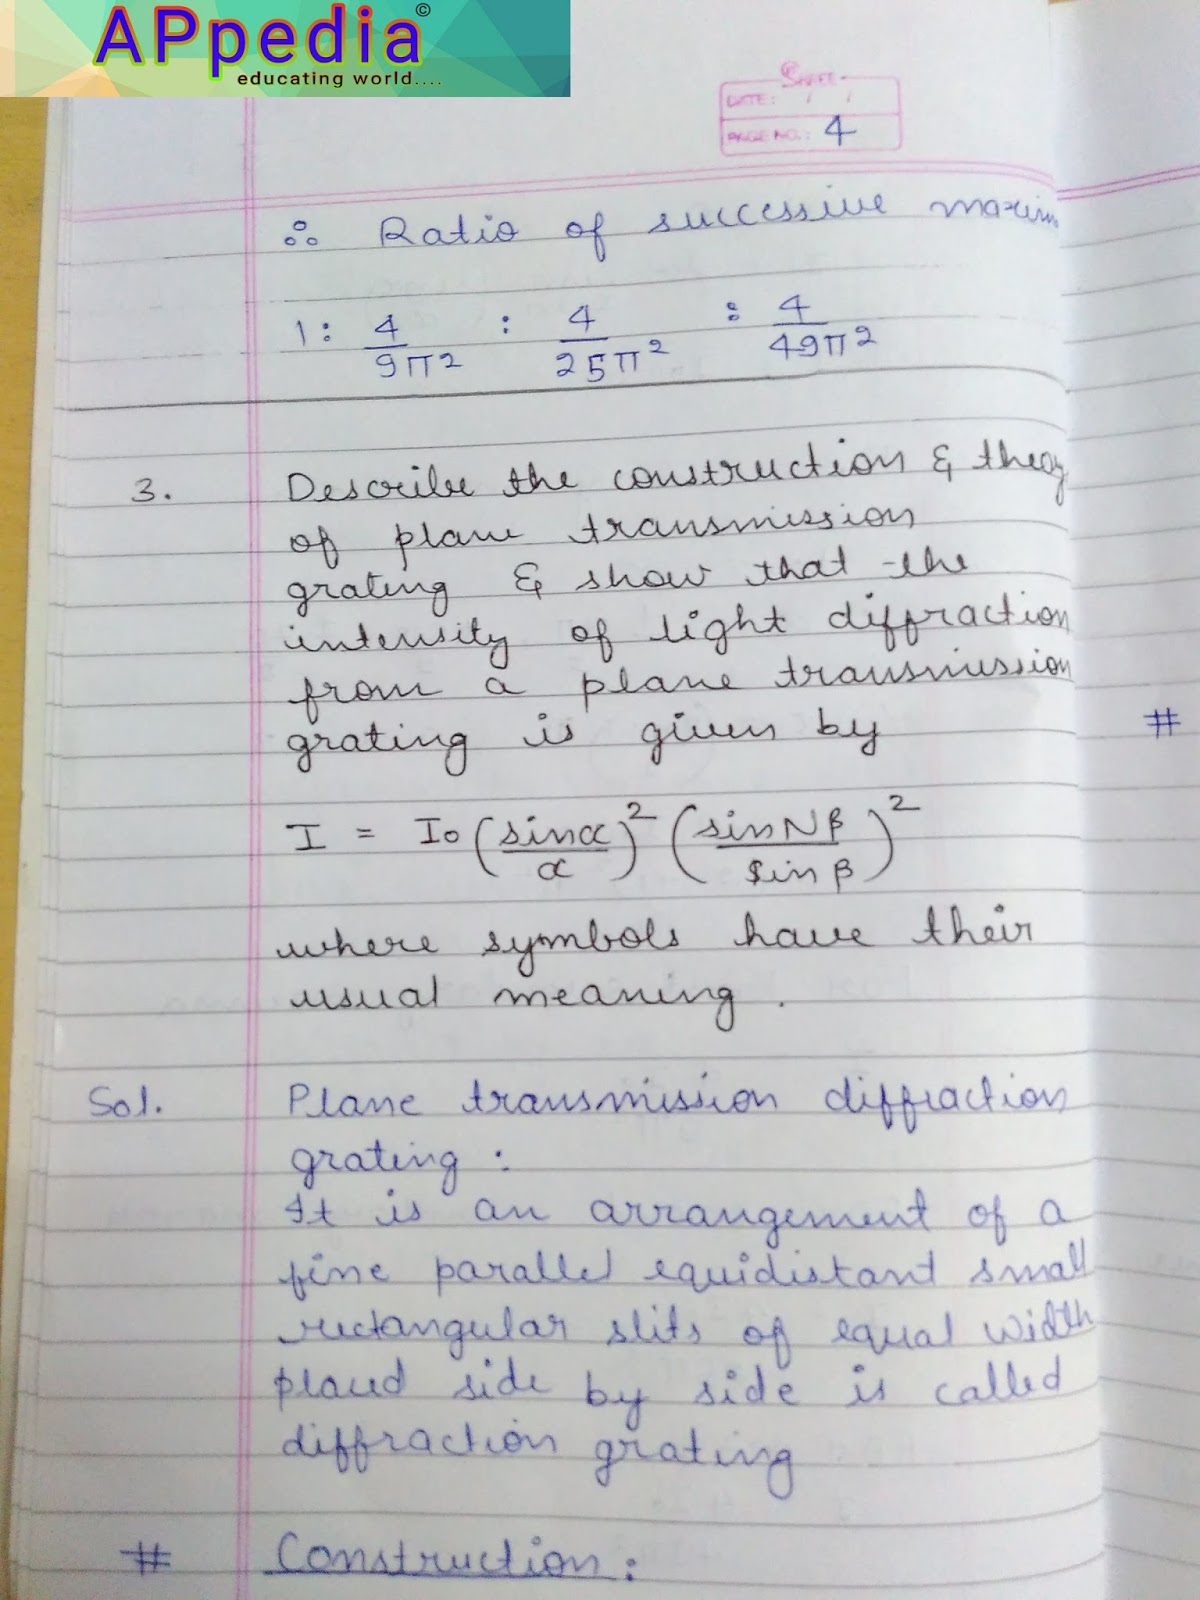 APpedia©
educating world....
DATE: / /
PAGE NO.: 4
∴ Ratio of successive maxim
1 : 4/9π² : 4/25π² : 4/49π²
3. Describe the construction & theory
of plane transmission
grating & show that the
intensity of light diffraction
from a plane transmission
grating is given by
#
I = I₀ (sinα/α)² (sinNβ/sinβ)²
where symbols have their
usual meaning.
Sol. Plane transmission diffraction
grating :
It is an arrangement of a
fine parallel equidistant small
rectangular slits of equal width
placed side by side is called
diffraction grating
# Construction :